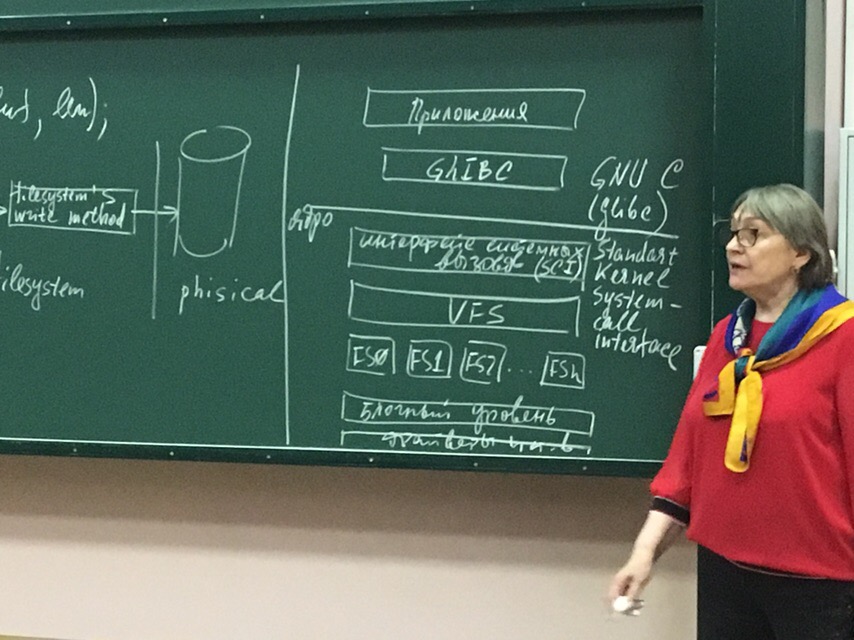 , len);
filesystem's
write method
filesystem
phisical
Приложения
GhIBC
GNU C
(glibc)
ядро
интерфейс системных
вызовов (SCI)
Standart
Kernel
System-
call
interface
VFS
FS0 FS1 FS2 .... FSn
Блочный уровень
драйверы